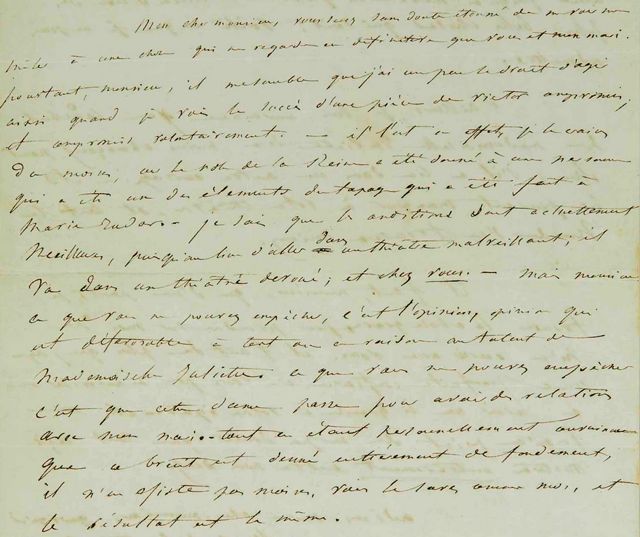 Mon cher monsieur, vous serez sans doute étonné de me voir me
mêler à une chose qui ne regarde en définitive que vous et mon mari.
pourtant, monsieur, il me semble que j'ai un peu le droit d'agir
ainsi quand je vois le succès d'une pièce de victor compromis,
et compromis volontairement. — il l'est en effet, je le crains
du moins, car le rôle de la Reine a été donné à une personne
qui a été un des éléments du tapage qui a été fait à
Marie Tudor — je sais que les conditions sont actuellement
Meilleures, puisqu'au lieu d'aller dans un théâtre malveillant, il
va dans un théâtre dévoué, et chez vous. — mais monsieur
ce que vous ne pouvez empêcher, c'est l'opinion, opinion qui
est défavorable à tort ou à raison au talent de
Mademoiselle Juliette. ce que vous ne pouvez empêcher
c'est que cette dame passe pour avoir des relations
avec mon mari — tout en étant personnellement convaincue
que ce bruit est dénué entièrement de fondement,
il n'en existe pas moins, vous le savez comme moi, et
le résultat est le même.